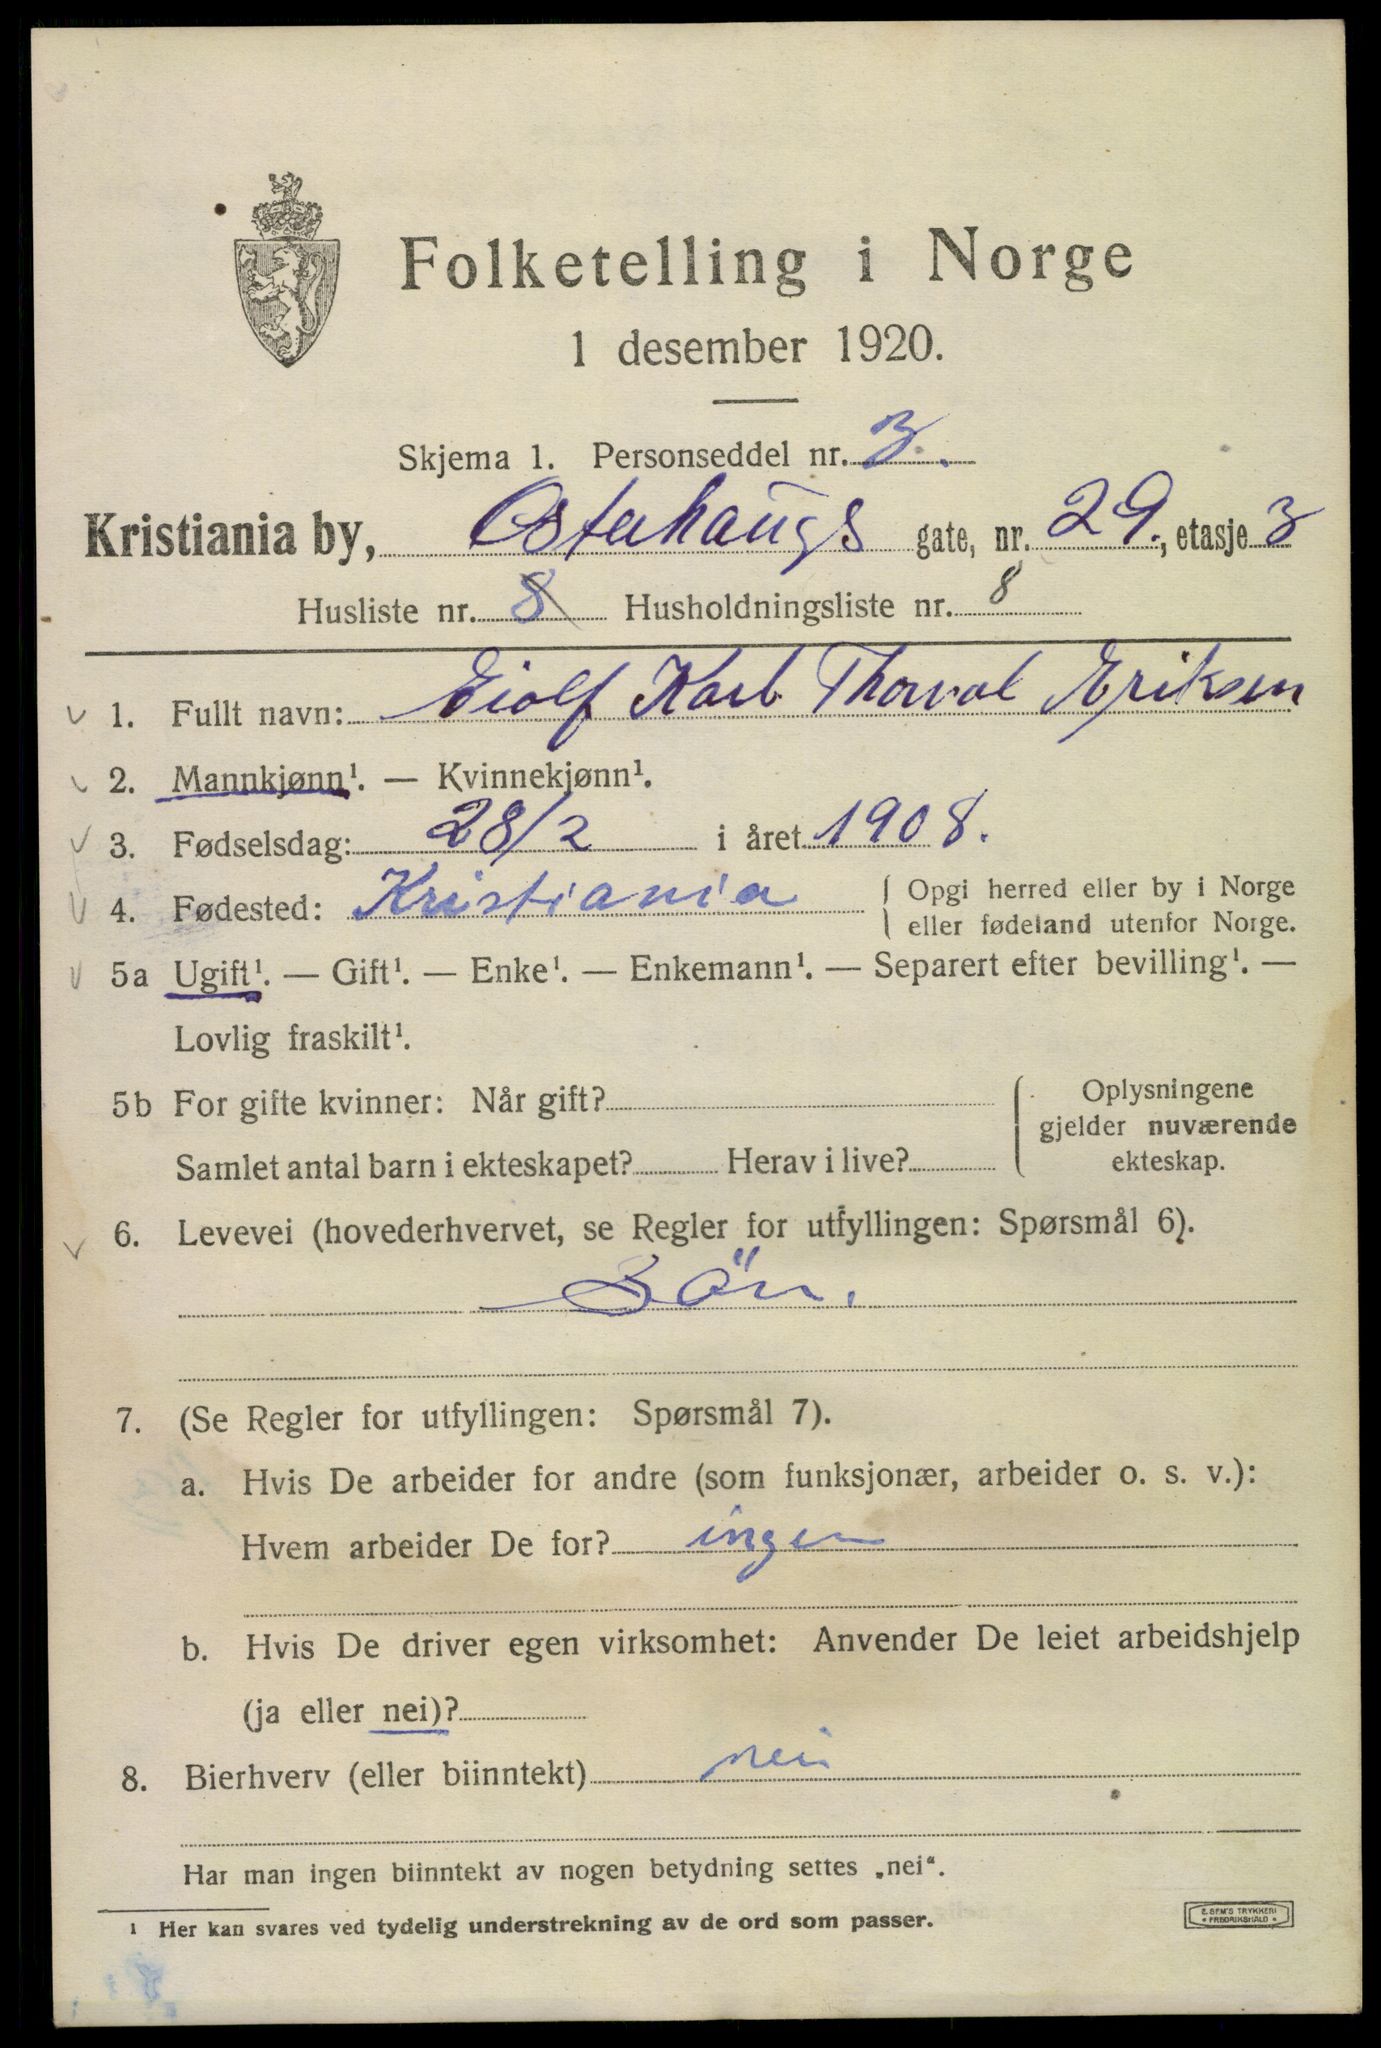 Folketelling i Norge
1 desember 1920.
Skjema 1. Personseddel nr. 3.
Kristiania by, Osterhaugs gate, nr. 29., etasje 3
Husliste nr. 8 Husholdningsliste nr. 8
1. Fullt navn: Eiolf Karl Thorval Eriksen
2. Mannkjønn¹. — Kvinnekjønn¹.
3. Fødselsdag: 28/2 i året 1908.
4. Fødested: Kristiania { Opgi herred eller by i Norge
eller fødeland utenfor Norge.
5a Ugift¹. — Gift¹. — Enke¹. — Enkemann¹. — Separert efter bevilling¹. —
Lovlig fraskilt¹.
5b For gifte kvinner: Når gift?
Samlet antal barn i ekteskapet? Herav i live?
Oplysningene
gjelder nuværende
ekteskap.
6. Levevei (hovederhvervet, se Regler for utfyllingen: Spørsmål 6).
Sön.
7. (Se Regler for utfyllingen: Spørsmål 7).
a. Hvis De arbeider for andre (som funksjonær, arbeider o. s. v.):
Hvem arbeider De for? ingen
b. Hvis De driver egen virksomhet: Anvender De leiet arbeidshjelp
(ja eller nei)?
8. Bierhverv (eller biinntekt) nei
Har man ingen biinntekt av nogen betydning settes „nei“.
¹ Her kan svares ved tydelig understrekning av de ord som passer.
E. SEM'S TRYKKERI
* FREDRIKSHALD *